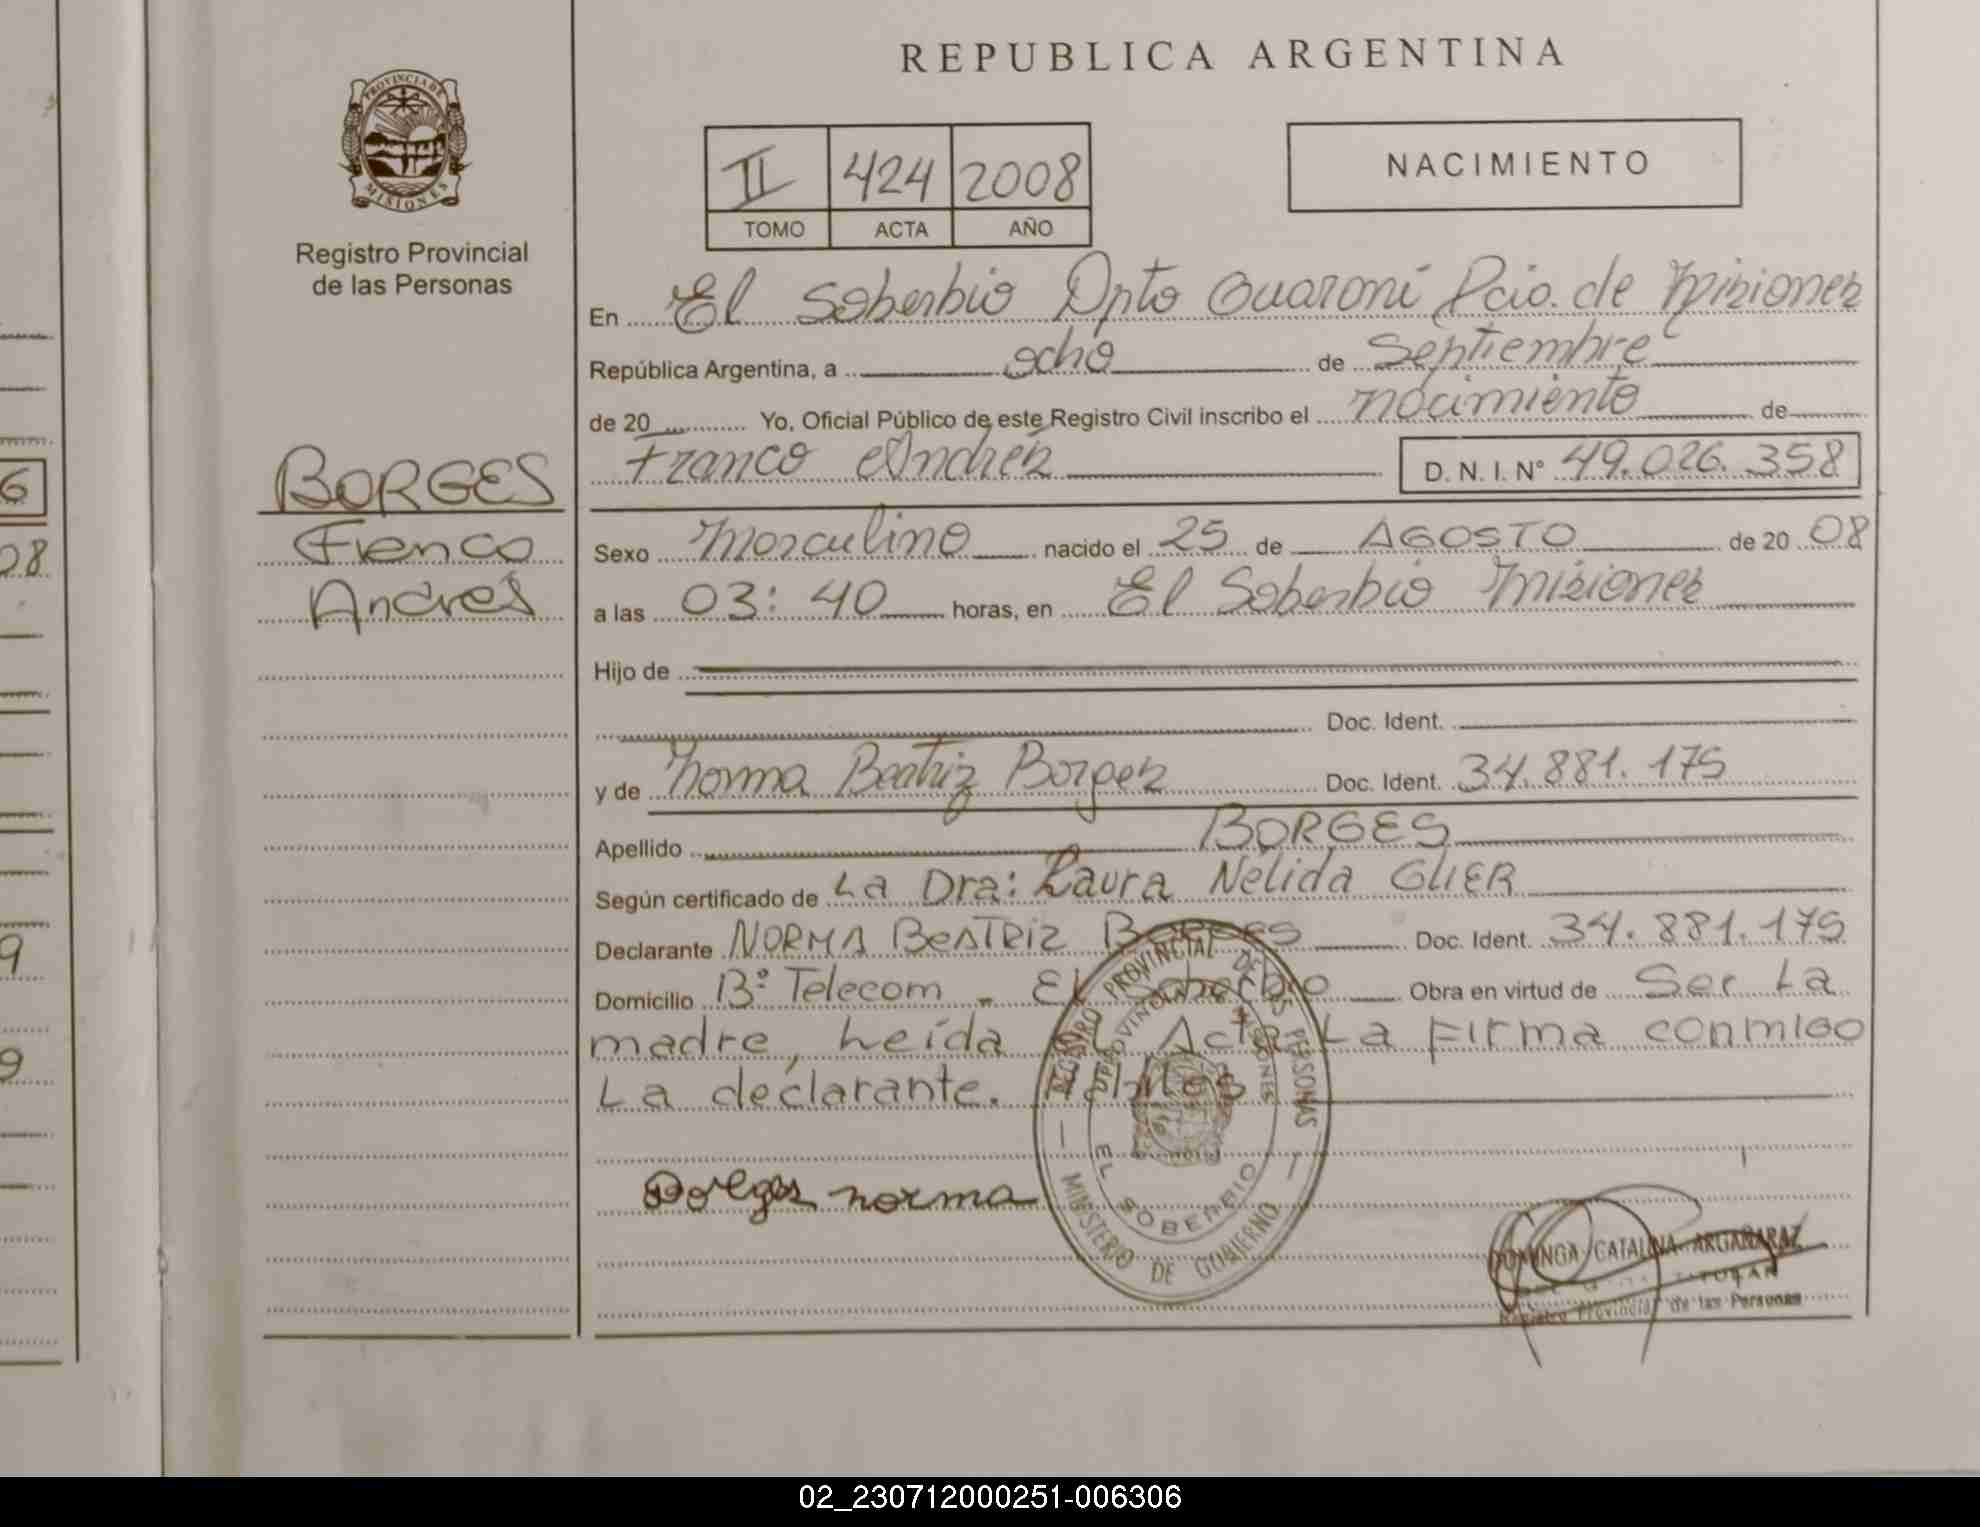 REPUBLICA ARGENTINA
PROVINCIA DE MISIONES
Registro Provincial
de las Personas
II 424 2008
TOMO ACTA AÑO
NACIMIENTO
En El Soberbio Dpto Guaraní Pcia. de Misiones
República Argentina, a ocho de Septiembre
de 20 Yo, Oficial Público de este Registro Civil inscribo el nacimiento de
Franco Andrés D. N. I. Nº 49.026.358
BORGES
Franco
Andrés
Sexo Masculino nacido el 25 de AGOSTO de 20 08
a las 03:40 horas, en El Soberbio Misiones
Hijo de
Doc. Ident.
y de Norma Beatriz Borges Doc. Ident. 34.881.175
Apellido BORGES
Según certificado de La Dra: Laura Nélida GLIER
Declarante NORMA BEATRIZ Borges Doc. Ident. 34.881.175
Domicilio Bº Telecom - El Soberbio Obra en virtud de Ser La
madre, Leída el Acta La Firma conmigo
La declarante.
Borges norma
REGISTRO PROVINCIAL DE LAS PERSONAS
PROVINCIA DE MISIONES
EL SOBERBIO
MINISTERIO DE GOBIERNO
DOMINGA CATALINA ARGAÑARAZ
TITULAR
Registro Provincial de las Personas
6
08
9
9
02_230712000251-006306